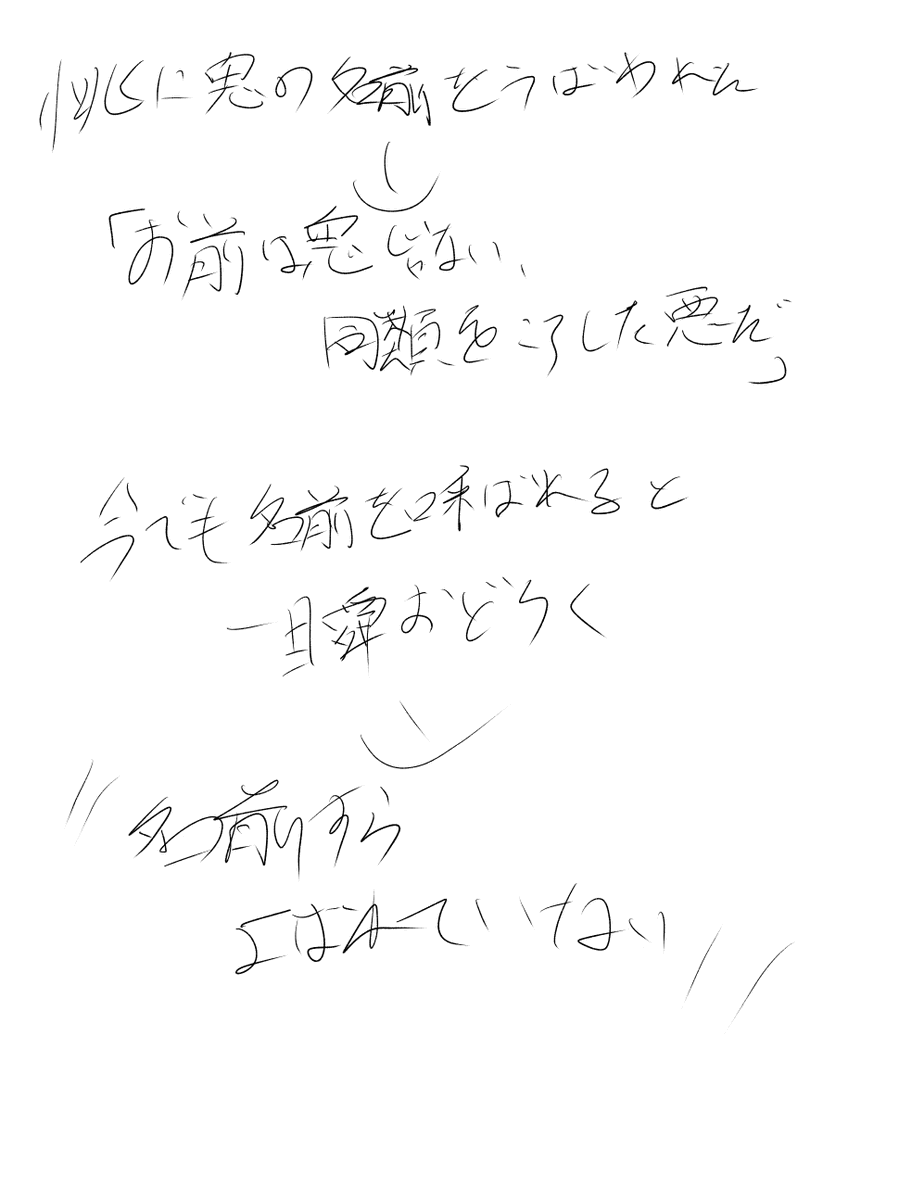 桃に鬼の名前をうばわれた
「お前は鬼じゃない、
同類をころした悪だ」
今でも名前を呼ばれると
一瞬おどろく
名前すら
よばれていない